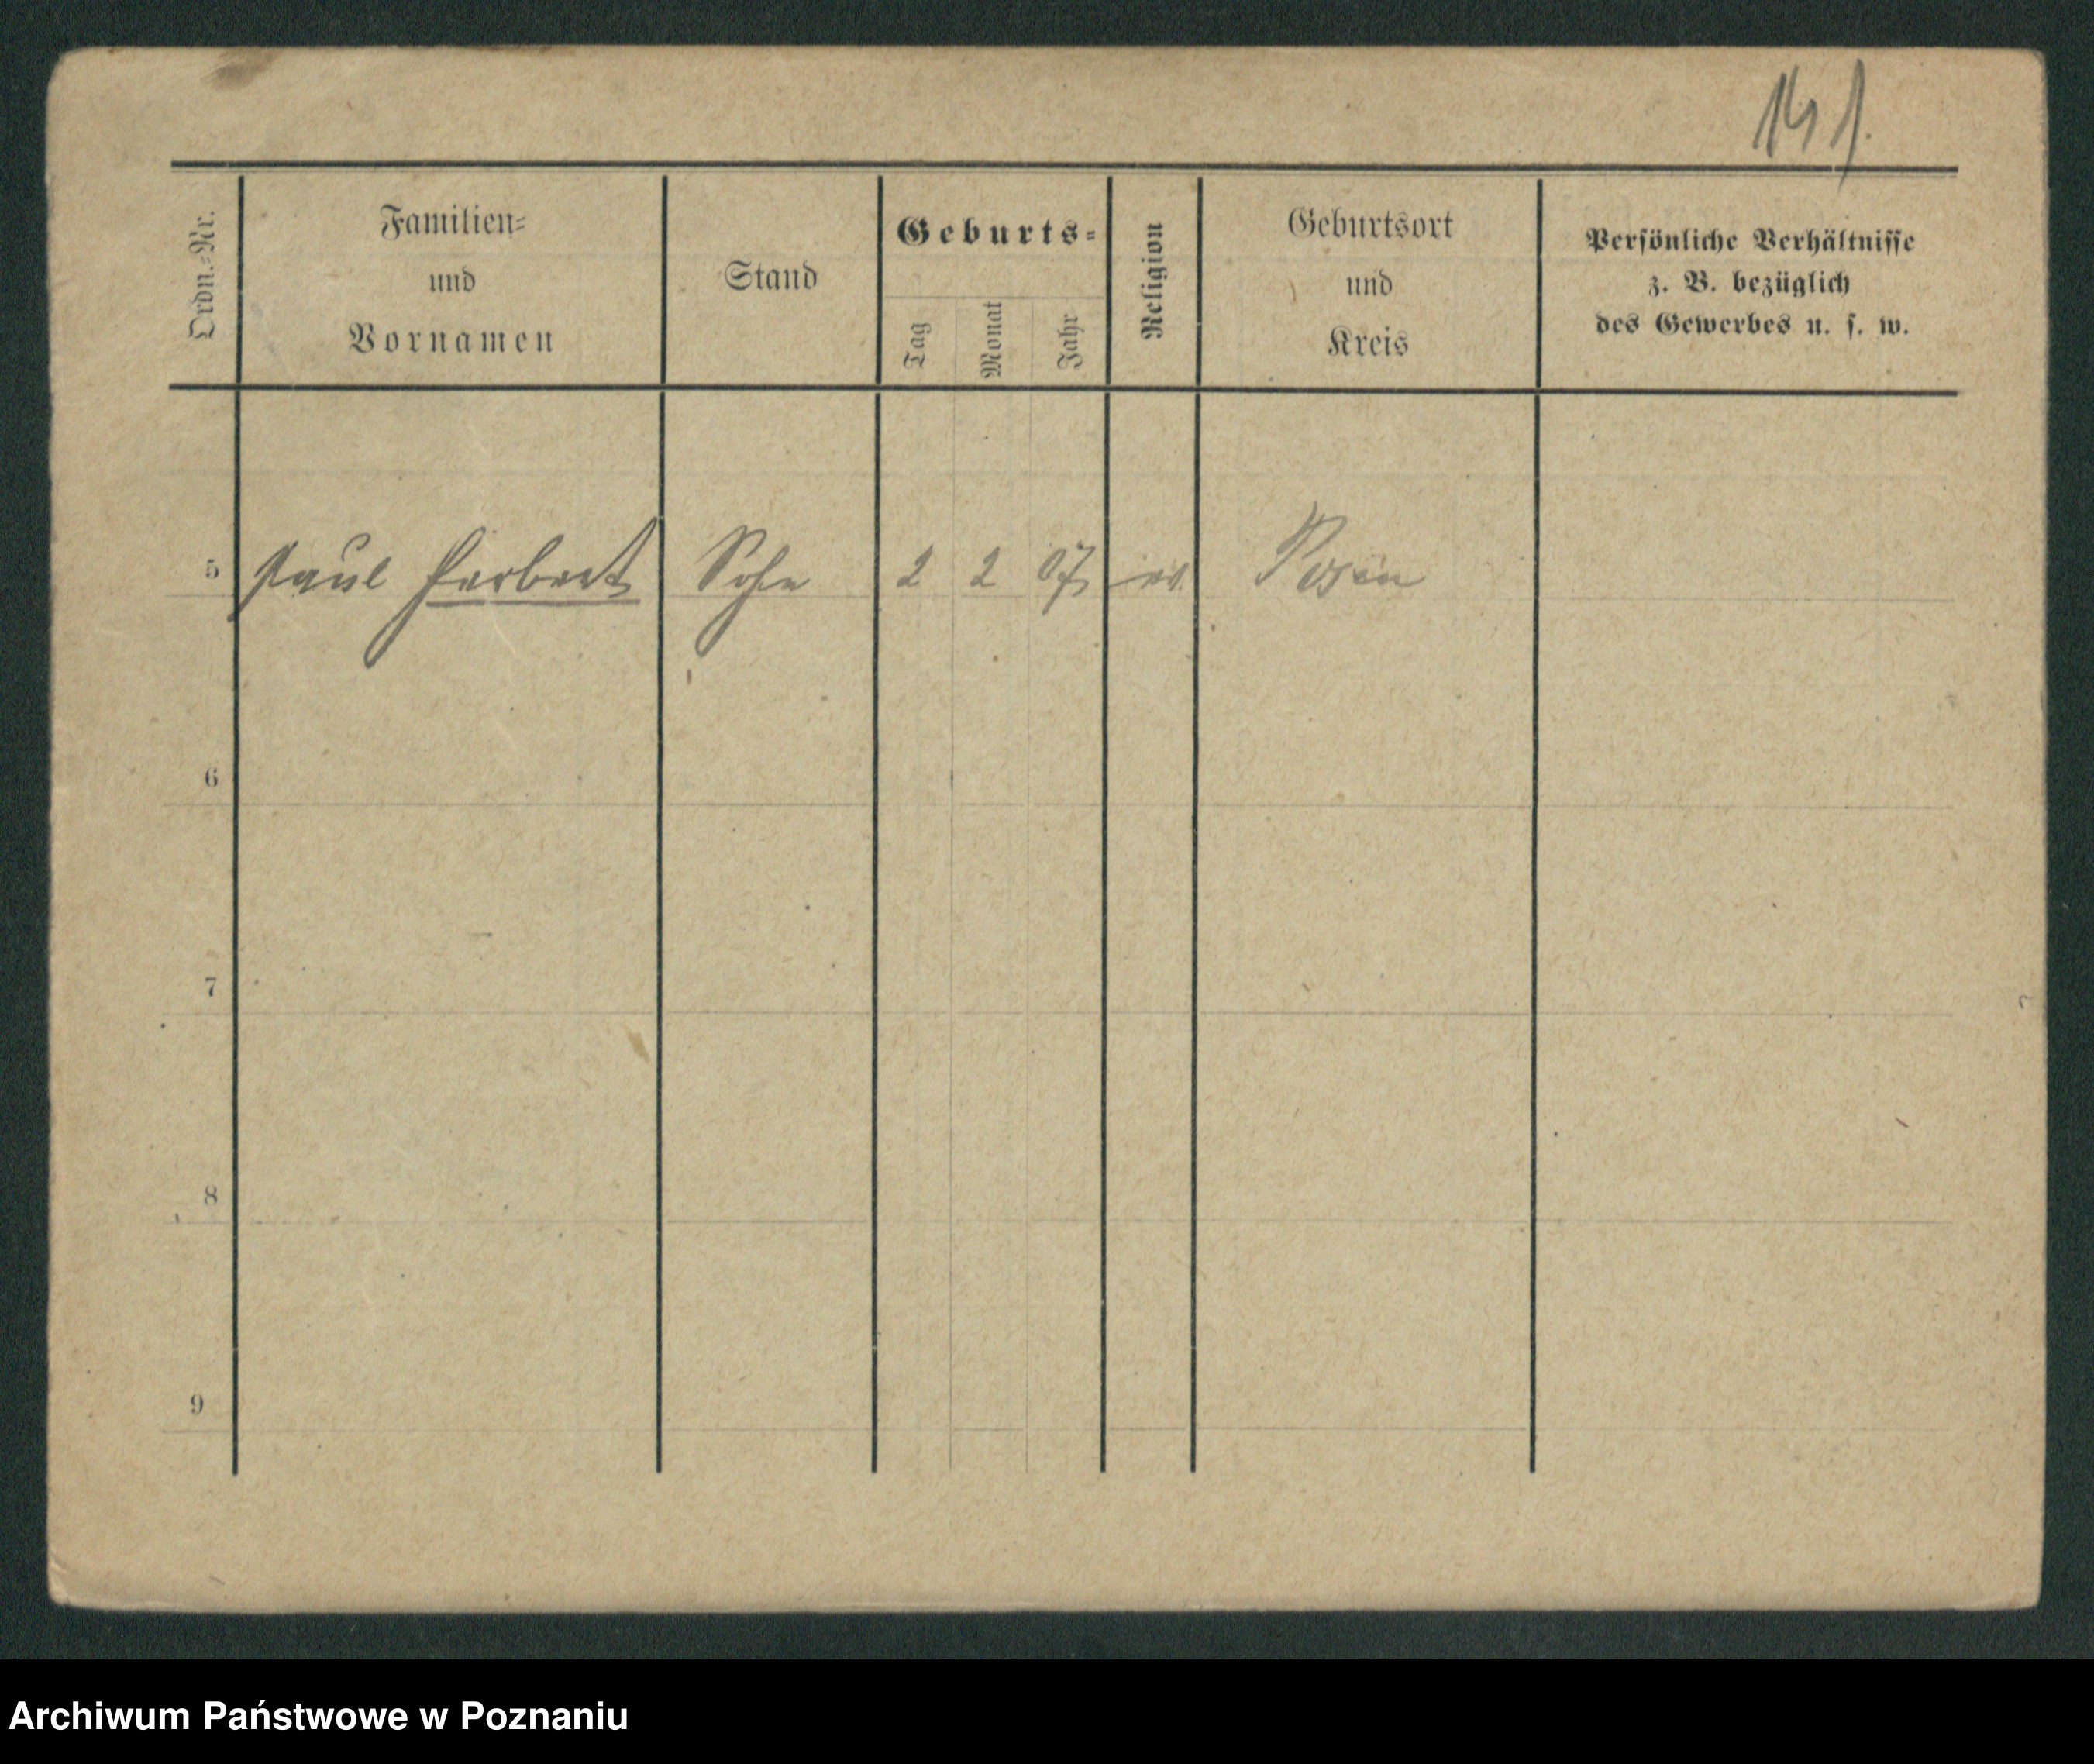 Ordn.-Nr.
Familien-
und
Vornamen
Stand
Geburts-
Tag
Monat
Jahr
Religion
Geburtsort
und
Kreis
Persönliche Verhältnisse
z. B. bezüglich
des Gewerbes u. s. w.
5 Paul Herbert Sohn 2 2 07 ev. Posen
6
7
8
9
Archiwum Państwowe w Poznaniu